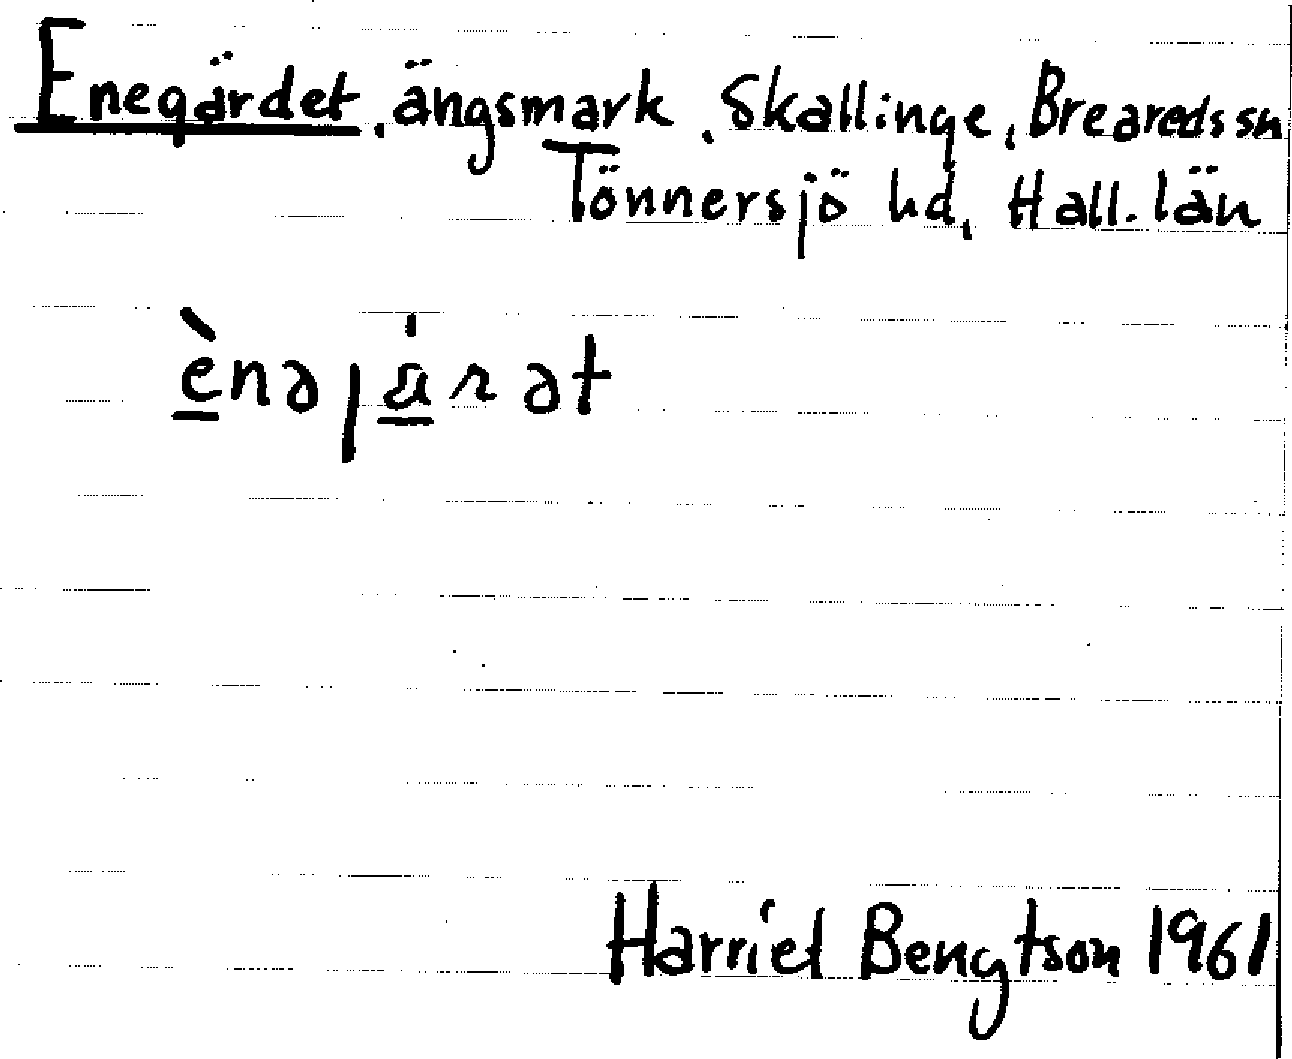 Enegärdet, ängsmark, Skallinge, Breareds sn
Tönnersjö hd, Hall. län
ènəȷärət
Harriet Bengtson 1961